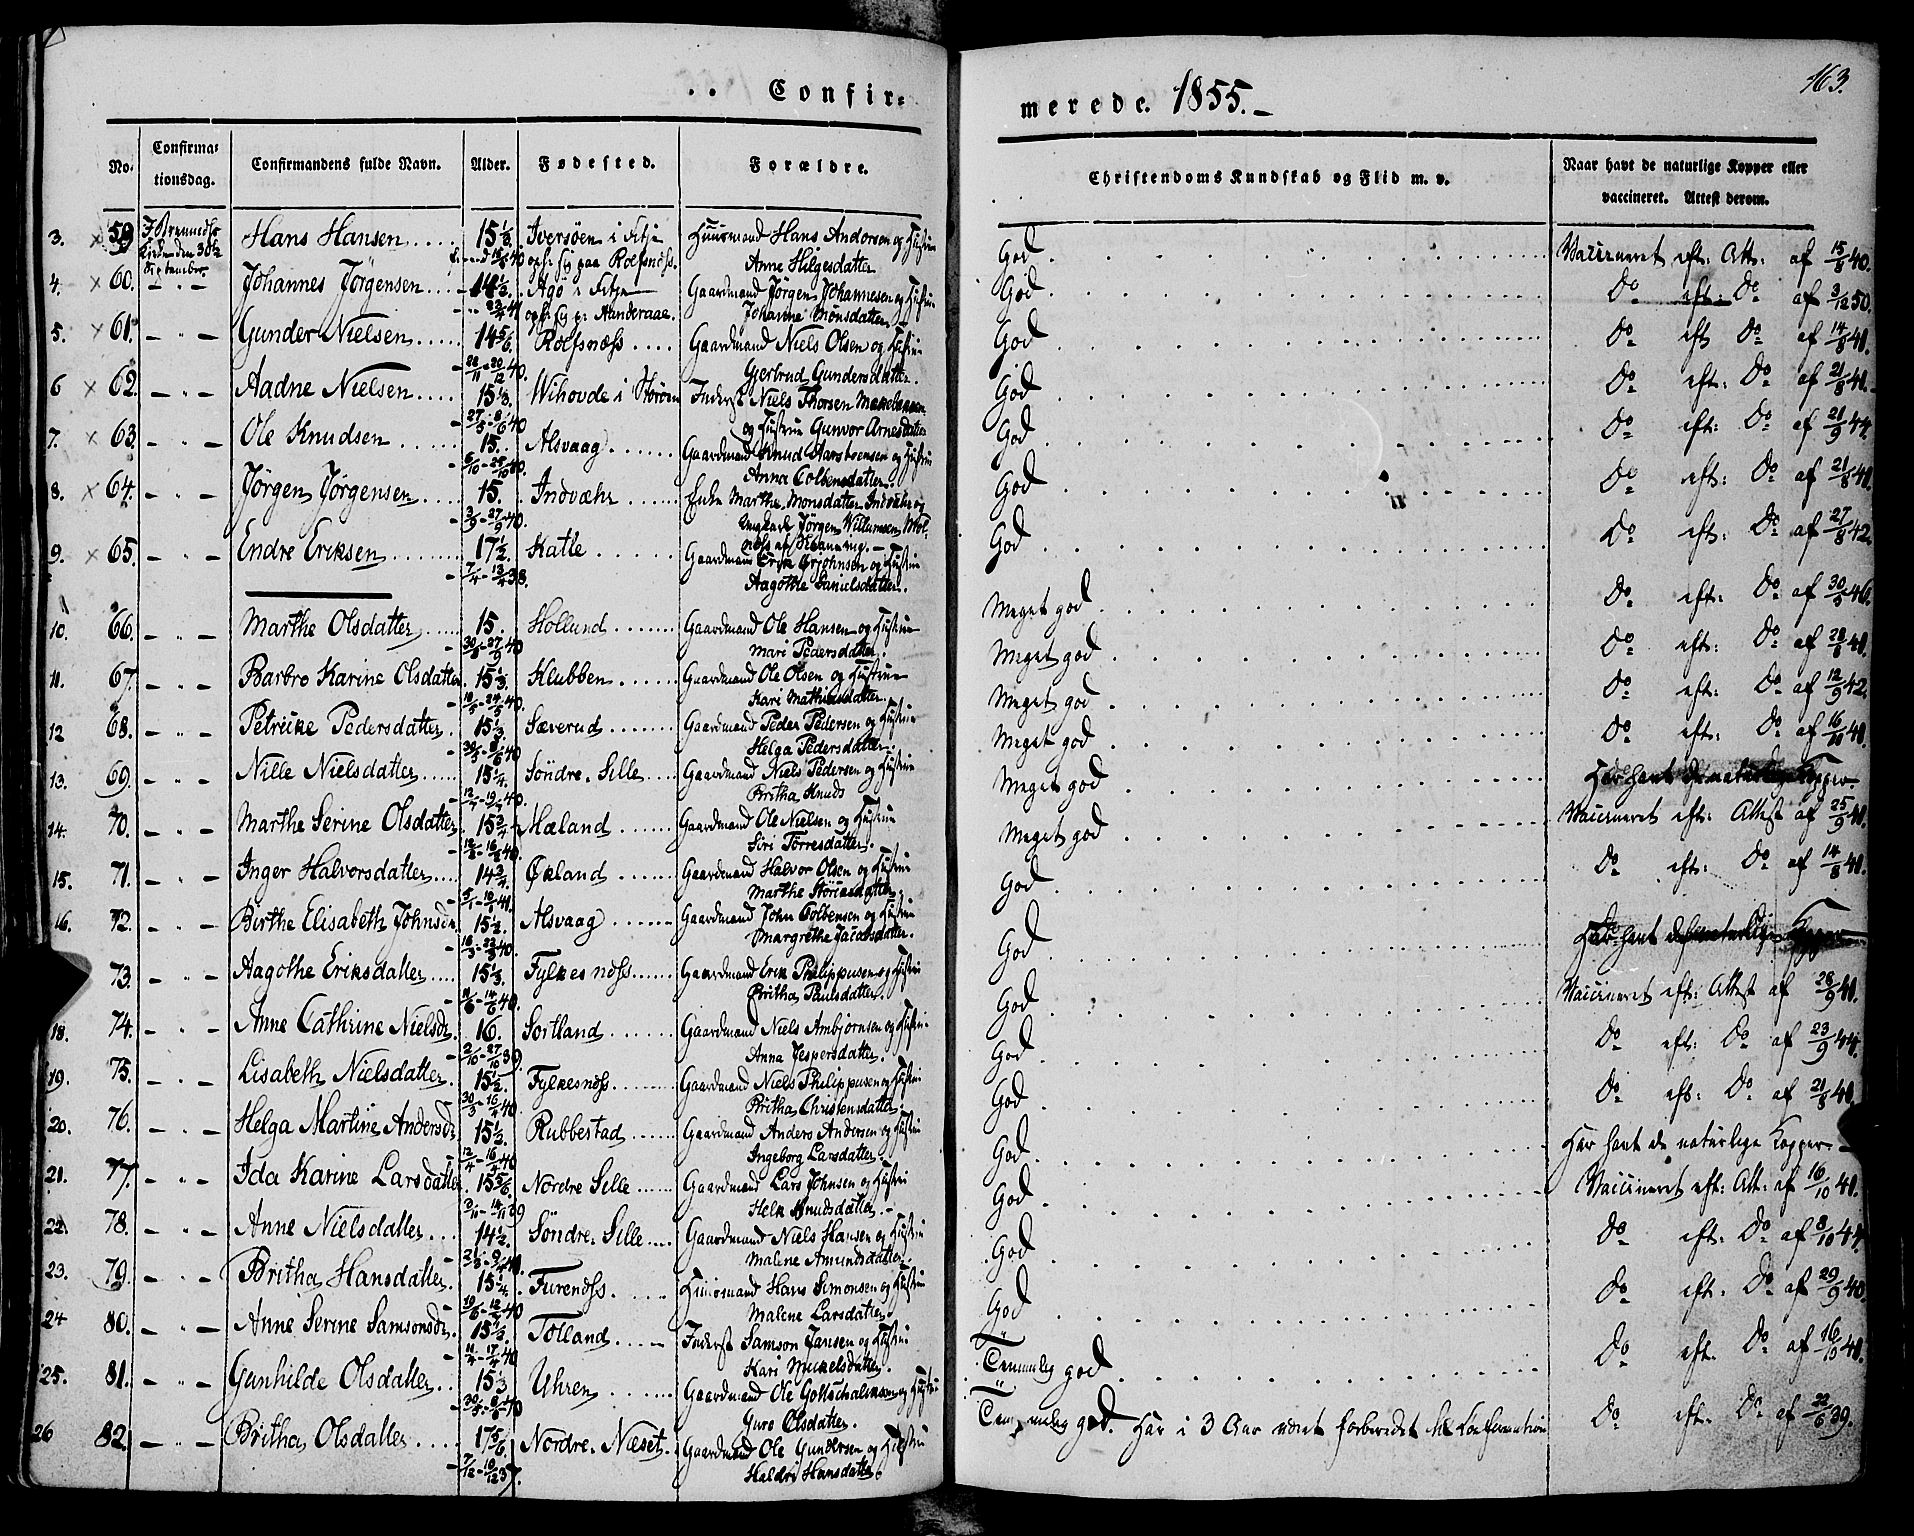 Confir-
merede. 1855.-
163.
No. Confirmationsdag. Confirmandens fulde Navn. Alder. Fødested. Forældre.
Christendoms Kundskab og Flid m. v.
Naar havt de naturlige Kopper eller vaccineret. Attest derom.
3. × 59 Hans Hansen.... 15 1/3. Iversøen i Fitje Huusmand Hans Andersen og Hustru
September Anne Helgesdatter
God Vaccineret eft: Att: af 15/8 40.
4. × 60. Johannes Jörgensen 14 1/3. Agö i Fitje Gaardmand Jörgen Johannesen og Hustru
Johanne Monsdatter
God Do eft: Do af 3/12 50.
5. × 61. Gunder Nielsen..... 14 5/6. Rolfsnæss.... Gaardmand Niels Olsen og Hustru
22/11 - 20/12 40. Gjertrud Gundersdatter.
God Do eft Do af 14/8 41.
6 × 62. Aadne Nielsen.... 15 1/3. Wihovde i Störöen Inderst Niels Thorsen
27/5 - 8/6 40 og Hustru Gunvor Arnesdatter
God Do eft: Do af 21/8 41.
7. × 63. Ole Knudsen...... 15. Alsvaag....... Gaardmand Knud og Hustru
Anna Colbensdatter.
God Do eft: Do af 21/9 44.
8. × 64. Jörgen Jörgensen.... 15. Indvæhr...... Enke Marthe Monsdatter Indvæhr og
Ungkarl Jörgen Willumsen
God Do eft: Do af 21/8 41.
9. × 65. Endre Eriksen........ 17 1/2. Katle........ Gaardmand Erik og Hustru
7/4 - 13/4 38. Aagothe Danielsdatter.
God Do eft: Do af 27/8 42.
10. 66. Marthe Olsdatter...... 15. Hollund........ Gaardmand Ole Hansen og Hustru
Mari Pedersdatter.
Meget god Do eft: Do af 30/5 46.
11. 67. Barbro Karine Olsdatter. 15 1/3. Klubben...... Gaardmand Ole Olsen og Hustru
Kari Mathiasdatter.
Meget god Do eft: Do af 28/8 41.
12 68. Petrikke Pedersdatter. 15 1/3. Sæverud..... Gaardmand Peder Pedersen og Hustru
30/5 - 8/6 40 Helga Pedersdatter.
Meget god Do eft: Do af 12/9 42.
13. 69. Nille Nielsdatter...... 15 1/4. Söndre. Lille.... Gaardmand Niels Pedersen og Hustru
Britha Knuds
Meget god Do eft: Do af 16/10 41.
14. 70. Marthe Serine Olsdatter. 15 Mæland..... Gaardmand Ole Nielsen og Hustru
Siri Torresdatter.
Meget god Har havt de naturlige Kopper
15. 71. Inger Halvorsdatter.... 14 3/4. Økland...... Gaardmand Halvor Olsen og Hustru
5/1 - 10/1 41. Marthe
Meget god Vaccineret eft: Attest af 25/9 41.
16. 72. Birthe Elisabeth Johnsdr. 15 1/2. Alsvaag....... Gaardmand John Colbensen og Hustru
Margrethe Jacobsdatter.
God Do eft: Do af 14/8 41.
73. Aagothe Eriksdatter.... 15 1/3. Fylkesnæss...... Gaardmand Erik Philippusen og Hustru
Britha Paulsdatter.
God Har havt de naturlige Kopper
18. 74. Anne Cathrine Nielsdr. 16. Sortland...... Gaardmand Niels Ambjörnsen og Hustru
2/10 - 27/10 39. Anna Jespersdatter.
God Vaccineret eft: Attest af 28/9 41.
19. 75. Lisabeth Nielsdatter 15 1/2. Fylkesnæss........ Gaardmand Niels Philippusen og Hustru
30/3 - 16/4 40 Britha Christensdatter
God Do eft: Do af 23/9 44.
20. 76. Helga Martine Andersdr. 15 1/2. Rubbestad...... Gaardmand Anders Andersen og Hustru
12/4 - 16/4 40 Ingeborg Larsdatter.
God Do eft: Do af 21/8 41.
21. 77. Ida Karine Larsdatter. 15 5/6. Nordre Lille...... Gaardmand Lars Johnsen og Hustru
Knudsdatter.
God Har havt de naturlige Kopper.-
22. 78. Anne Nielsdatter.... 14 1/2. Söndre. Lille.... Gaardmand Niels Hansen og Hustru
Malene Amundsdatter.
God Vaccineret eft: Att: af 16/10 41.
23. 79. Britha Hansdatter. 15 1/4. Furenæss. Huusmand Hans Simonsen og Hustru
Malene Larsdatter.
God Do eft: Do af 8/10 44.
24 80. Anne Serine Samsonsdr. 15 1/2. Tolland..... Inderst Samson Jansen og Hustru
11/4 - 17/4 40 Kari Mickelsdatter.
God Do eft: Do af 29/9 40.
25. 81. Gunhilde Olsdatter... 15 1/3 Uhren........ Gaardmand Ole Gottschalksen og Hustru
Guro Olsdatter.
Temmelig god Do eft. Do af 16/10 41.
26 82. Britha Olsdatter..... 17 5/6. Nordre. Næset. Gaardmand Ole Gundersen og Hustru
7/12 - 10/12 37. Haldri Hansdatter.
Temmelig god. Har i 3 Aar været forberedet til Confirmation
Do eft. Do af 22/6 39.